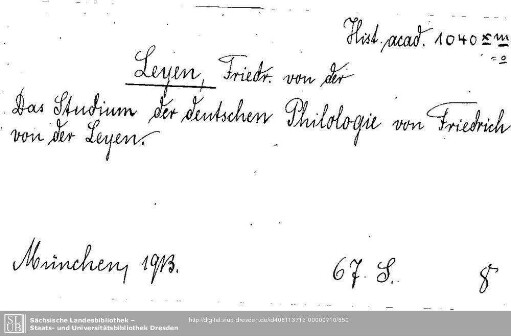 Hist. acad. 1040 xm
Leyen, Friedr. von der
Das Studium der deutschen Philologie von Friedrich
von der Leyen.
München, 1913.
67. S. 8°
SLUB
Sächsische Landesbibliothek –
Staats- und Universitätsbibliothek Dresden